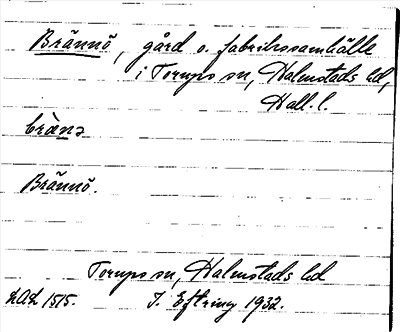 Brännö, gård o. fabrikssamhälle
i Torups sn, Halmstads hd,
Hall. l.
brànə
Brännö.
Torups sn, Halmstads hd
LAL 1515. J. Eftring 1932.